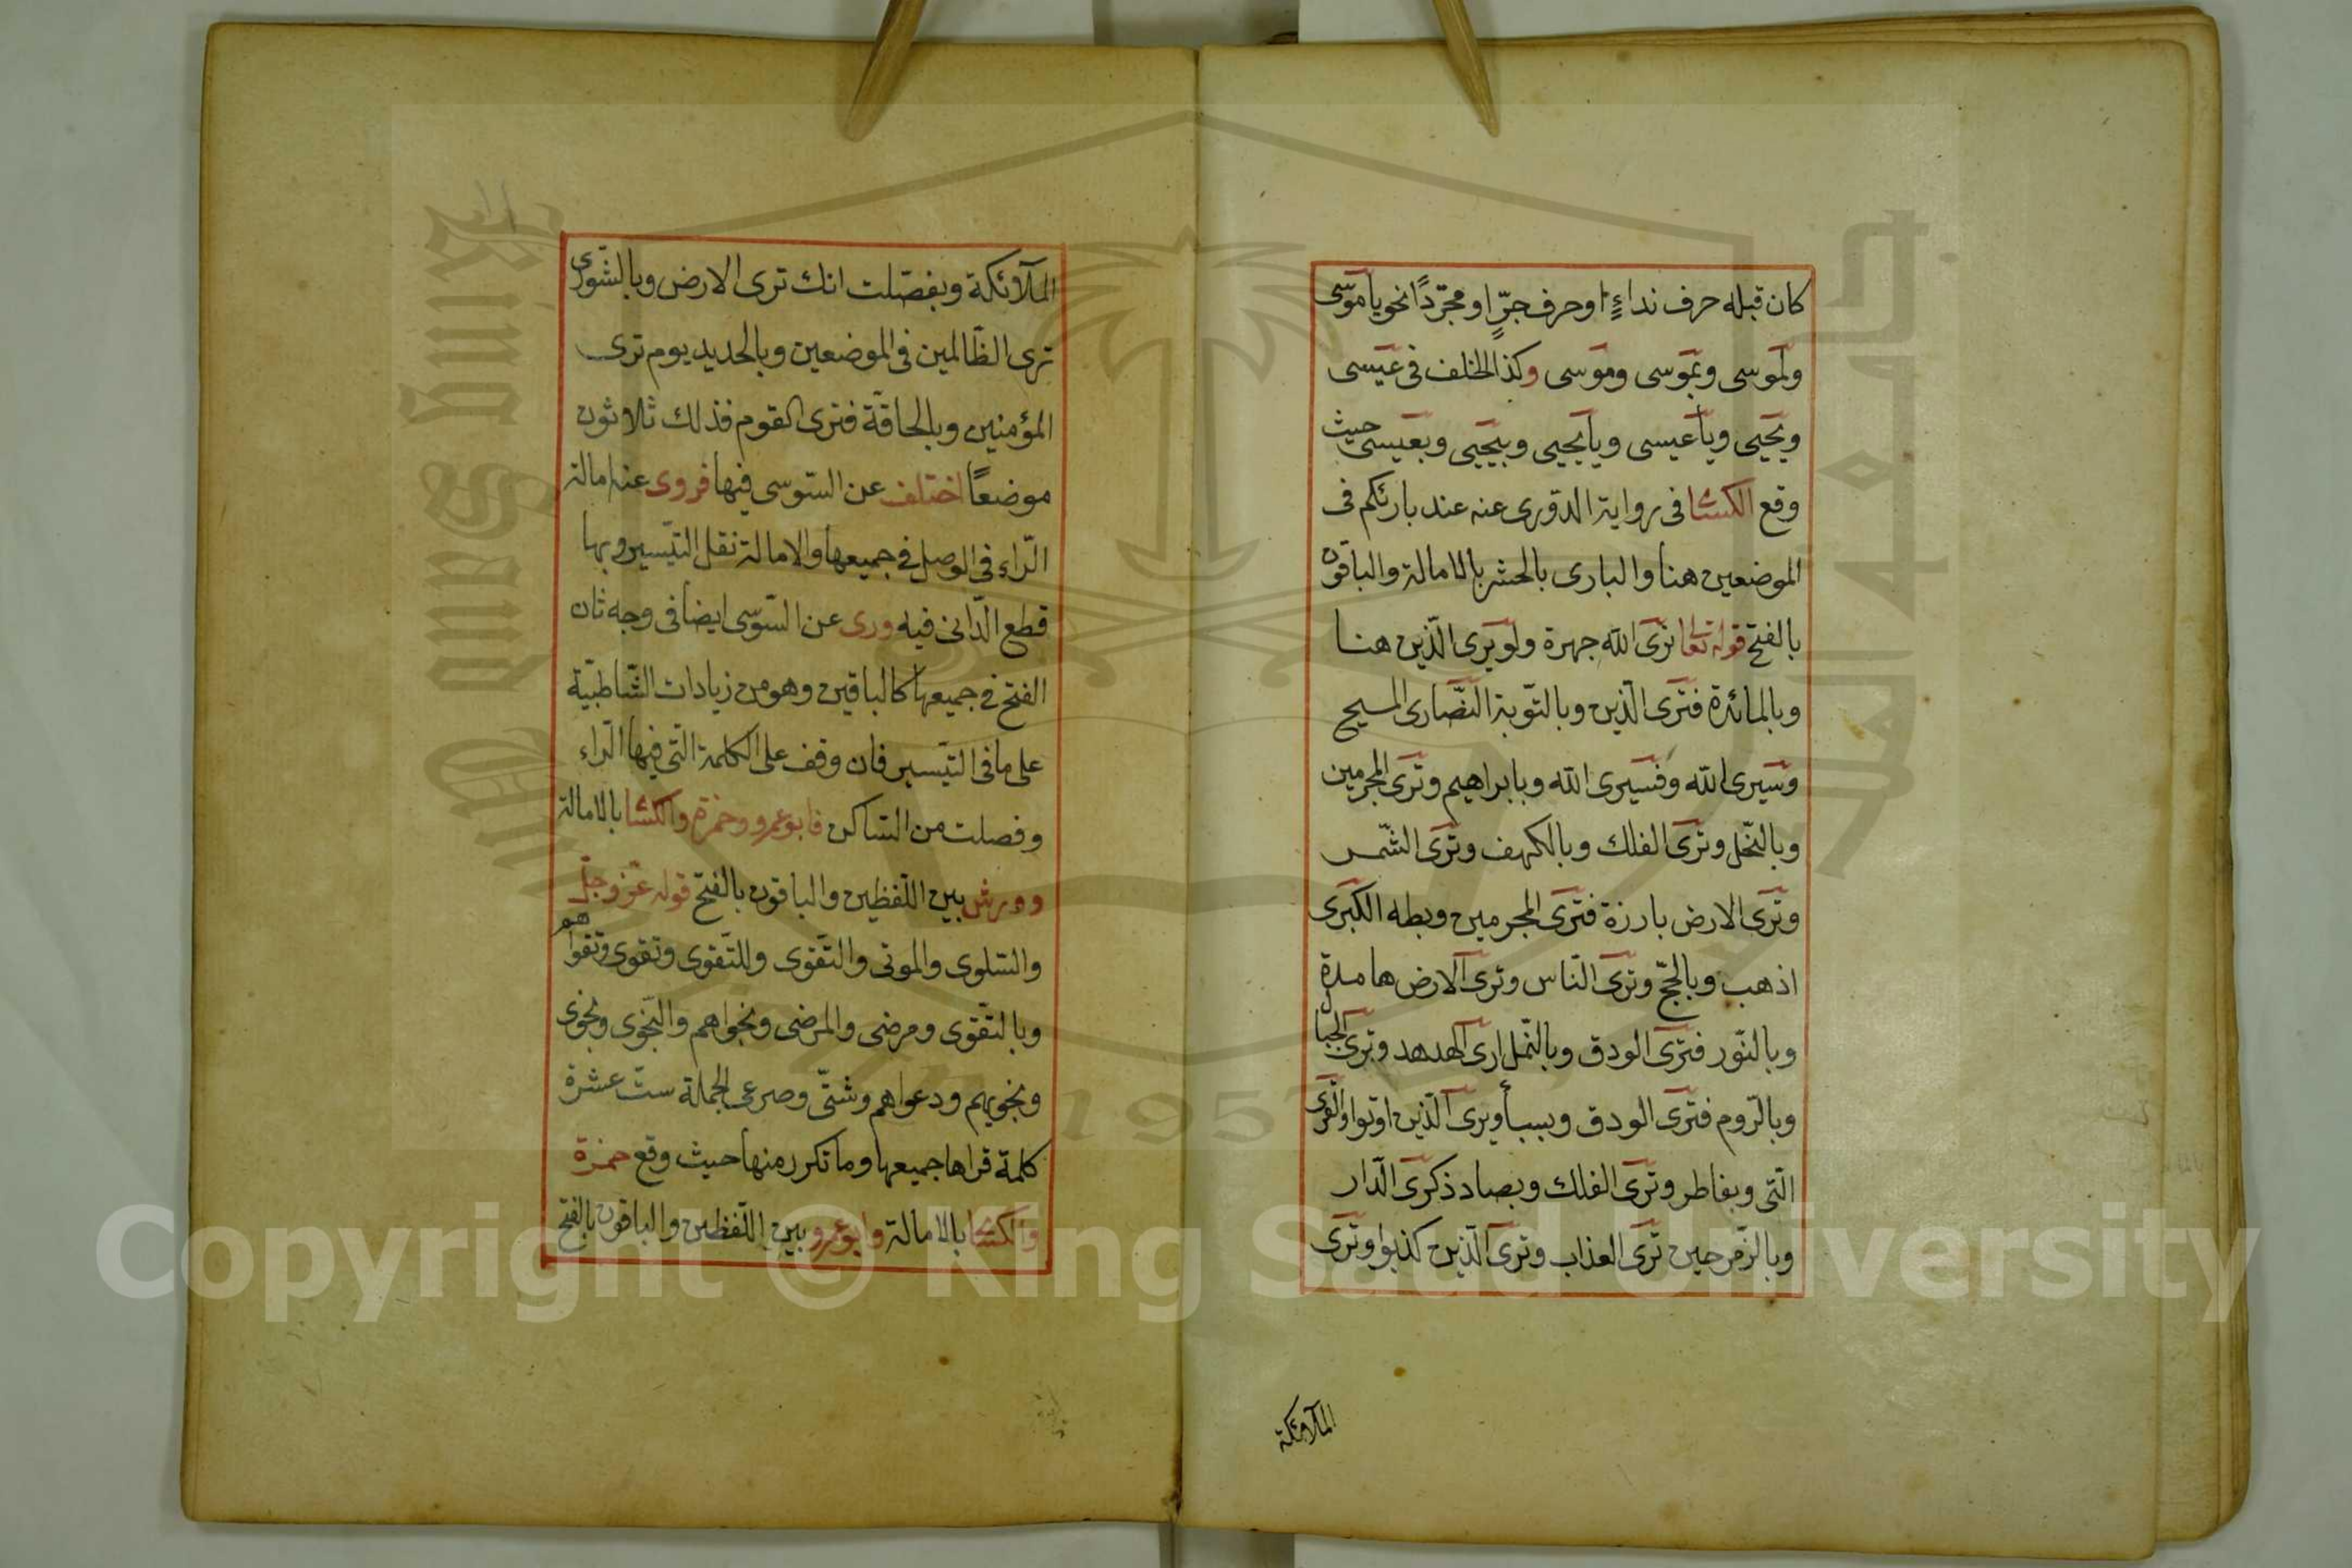 كان قبله حرف نداءٍ او حرف جرٍّ او مجرّدًا نحو يا موسى
ولموسى وبموسى وموسى وكذا الخلف فى عيسى
ويحيى ويا عيسى ويا يحيى وبيحيى وبعيسى حيث
وقع الكسائى فى رواية الدّورى عنه عند بارئكم فى
الموضعين هنا والبارى بالحشر بالامالة والباقون
بالفتح قوله تعا نرى الله جهرة ولو يرى الّذين هنا
وبالمائدة فترى الّذين وبالتّوبة النّصارى المسيح
وسيرى الله وفسيرى الله وبابراهيم وترى المجرمين
وبالنّحل وترى الفلك وبالكهف وترى الشّمس
وترى الارض بارزة فترى المجرمين وبطه الكبرى
اذهب وبالحجّ وترى النّاس وترى الارض هامدة
وبالنّور فترى الودق وبالنّمل ارى الهدهد وترى الجبال
وبالرّوم فترى الودق وبسبأ ويرى الّذين اوتوا والقرى
الّتى وبفاطر وترى الفلك وبصاد ذكرى الدّار
وبالزّمر حين ترى العذاب وترى الّذين كذبوا وترى
الملآئكة
الملآئكة وبفصّلت انك ترى الارض وبالشّورى
ترى الظّالمين فى الموضعين وبالحديد يوم ترى
المؤمنين وبالحاقّة فترى القوم فذلك ثلاثون
موضعًا اختلف عن السّوسى فيها فروى عنه امالة
الرّاء فى الوصل فى جميعها والامالة نقل التّيسير وبها
قطع الدّانى فيه وروى عن السّوسى ايضا فى وجه ثان
الفتح فى جميعها كالباقين وهو من زيادات الشّاطبيّة
على ما فى التّيسير فان وقف على الكلمة الّتى فيها الرّاء
وفصلت من السّاكن فابو عمرو وحمزة والكسائى بالامالة
وورش بين اللّفظين والباقون بالفتح قوله عزّ وجلّ
والسّلوى والموتى والتّقوى وللتّقوى وتقوى وتقواهم
وبالتّقوى ومرضى والمرضى ونجواهم والنّجوى ونجوى
ونجويهم ودعواهم وشتّى وصرعى الجملة ستّ عشرة
كلمة قراها جميعها وما تكرر منها حيث وقع حمزة
والكسائى بالامالة وابو عمرو بين اللّفظين والباقون بالفتح
King Saud University
1957
Copyright © King Saud University